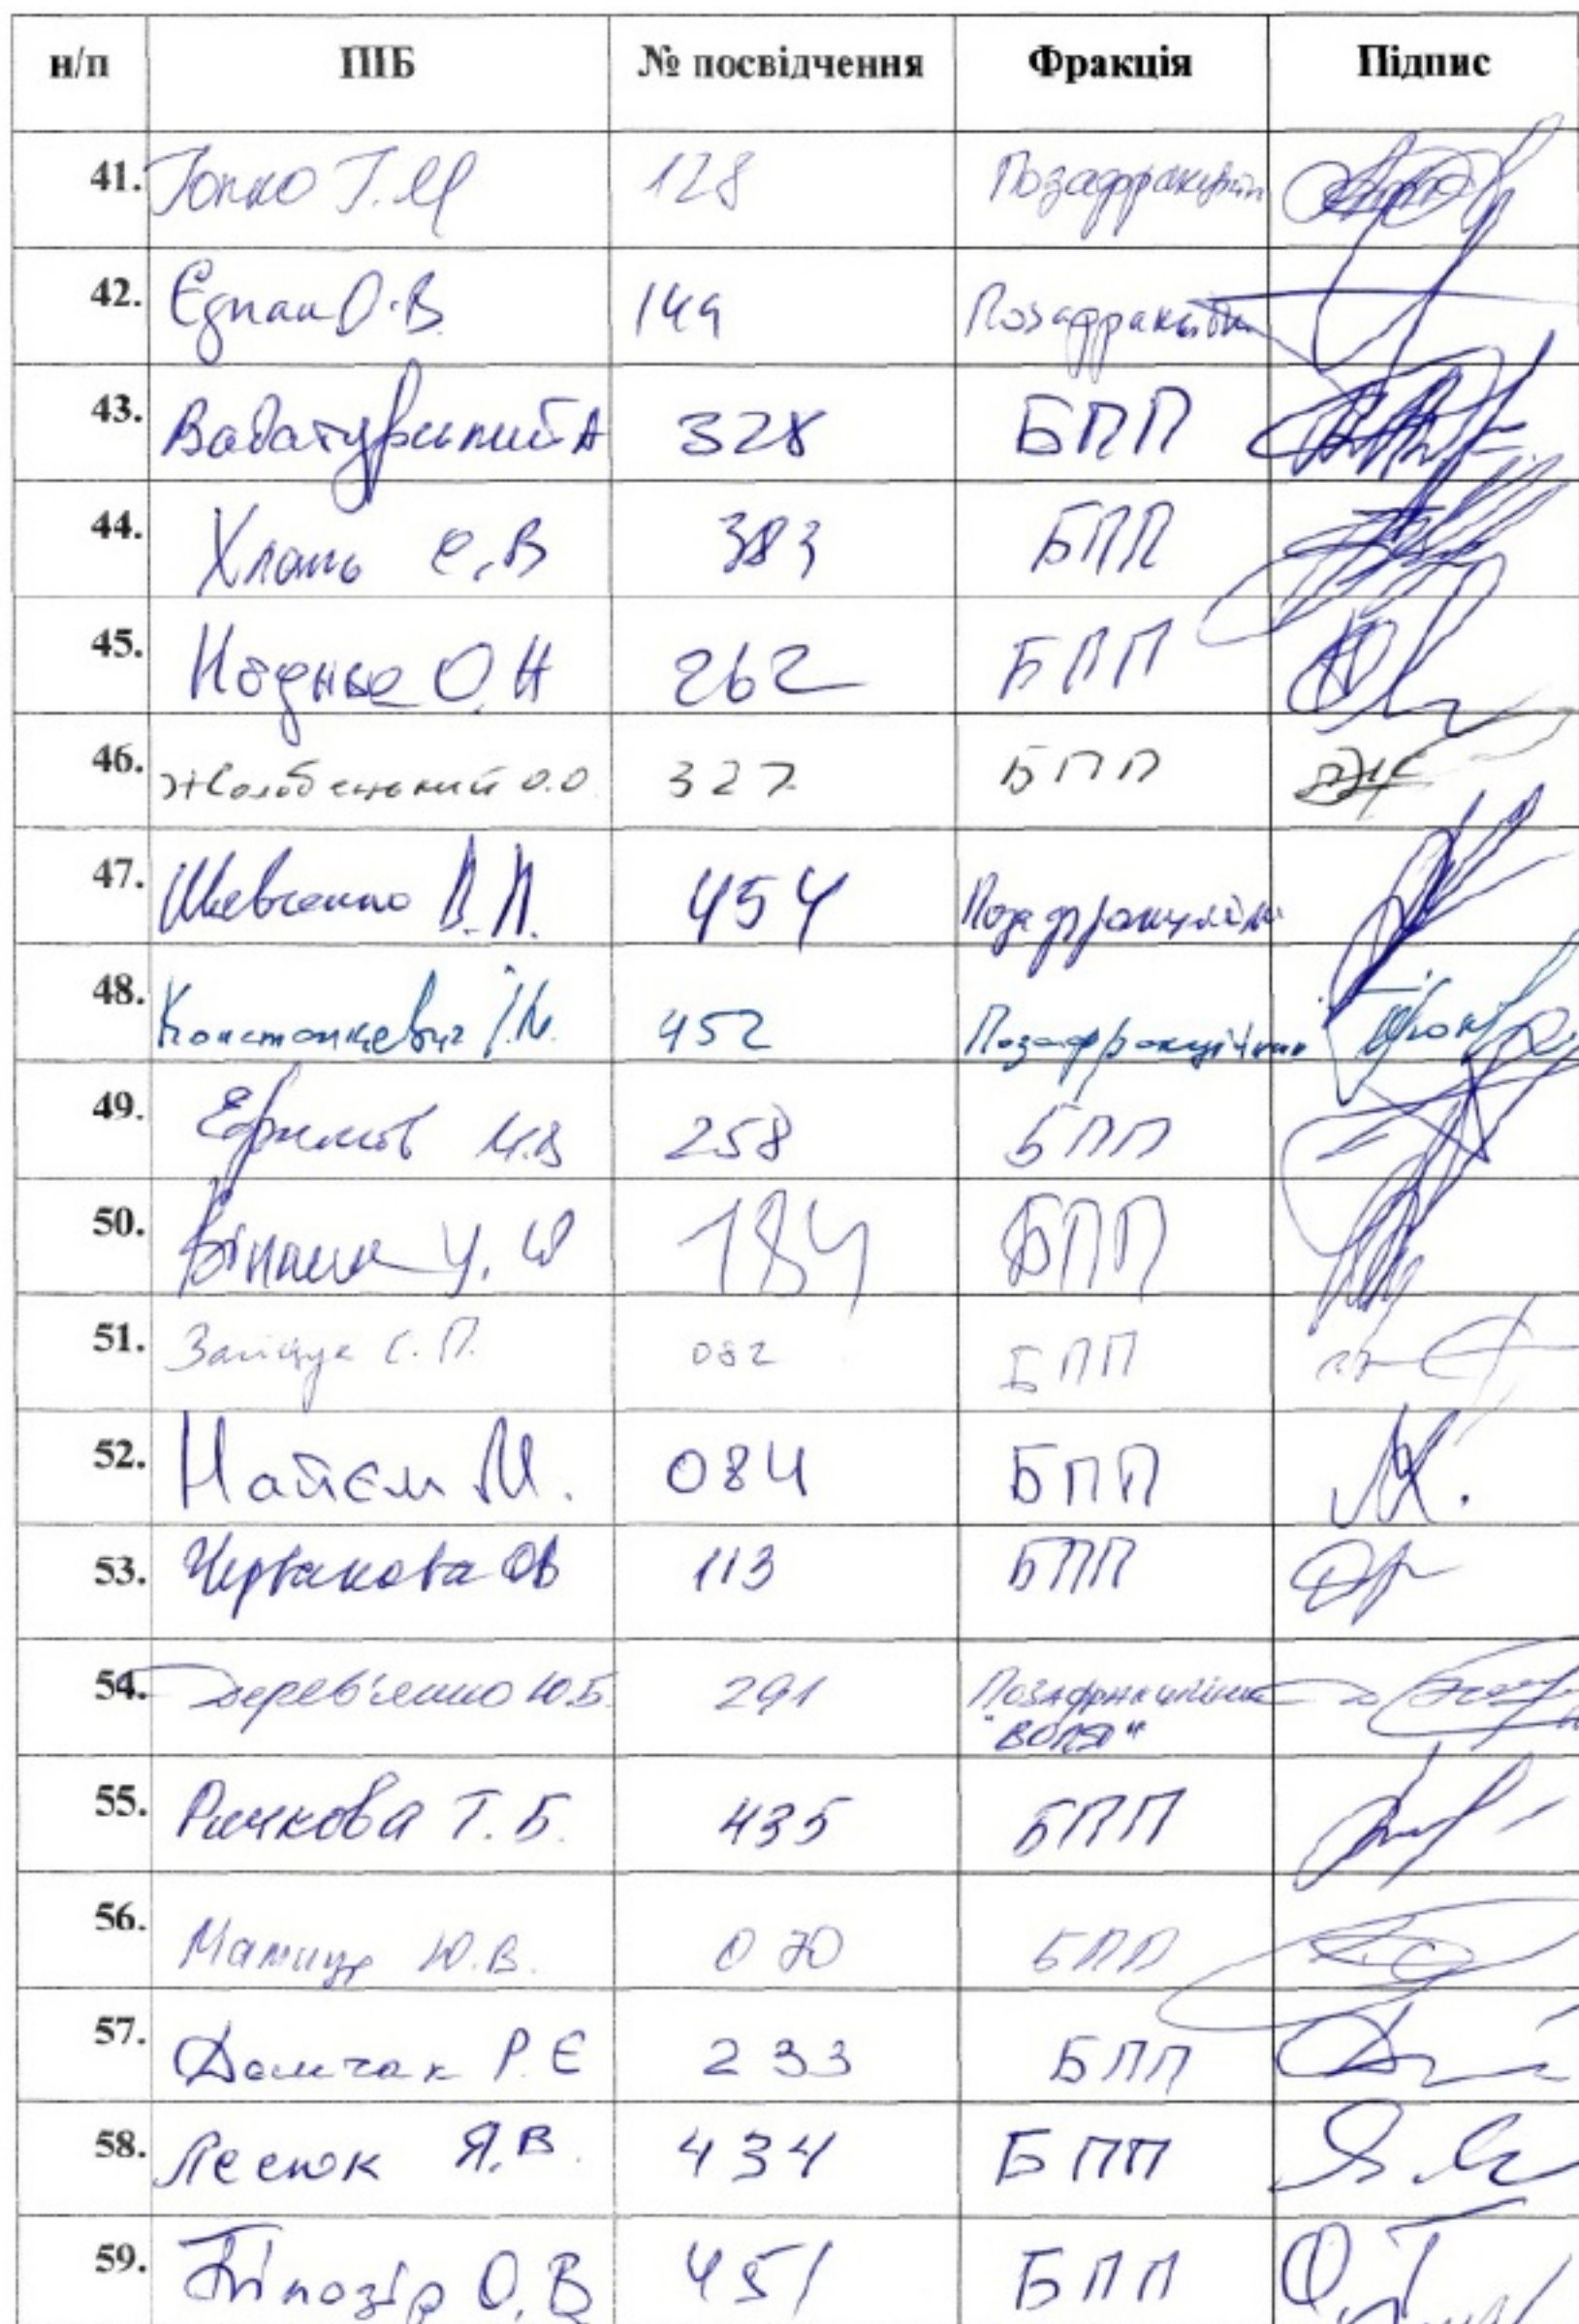 н/п ПІБ № посвідчення Фракція Підпис
41. Гопко Г.М 128 Позафракційн
42. Єднак О.В. 149 Позафракційн
43. Вадатурський А 328 БПП
44. Хлань С.В 383 БПП
45. Недава О.Н 262 БПП
46. Жолобецький О.О. 327 БПП
47. Шевченко В.Л. 454 Позафракційн
48. Констанкевич І.М. 452 Позафракційна
49. Ефимов М.В 258 БПП
50. 184 БПП
51. Заліщук С.П. 082 БПП
52. Найєм М. 084 БПП
53. Червакова ОВ 113 БПП
54. Дерев'янко Ю.Б. 291 Позафракційний
"ВОЛЯ"
55. Ричкова Т.Б. 435 БПП
56. Ю.В. 070 БПП
57. Демчак Р.Є 233 БПП
58. Лесюк Я.В. 434 БПП
59. Білозір О.В 451 БПП